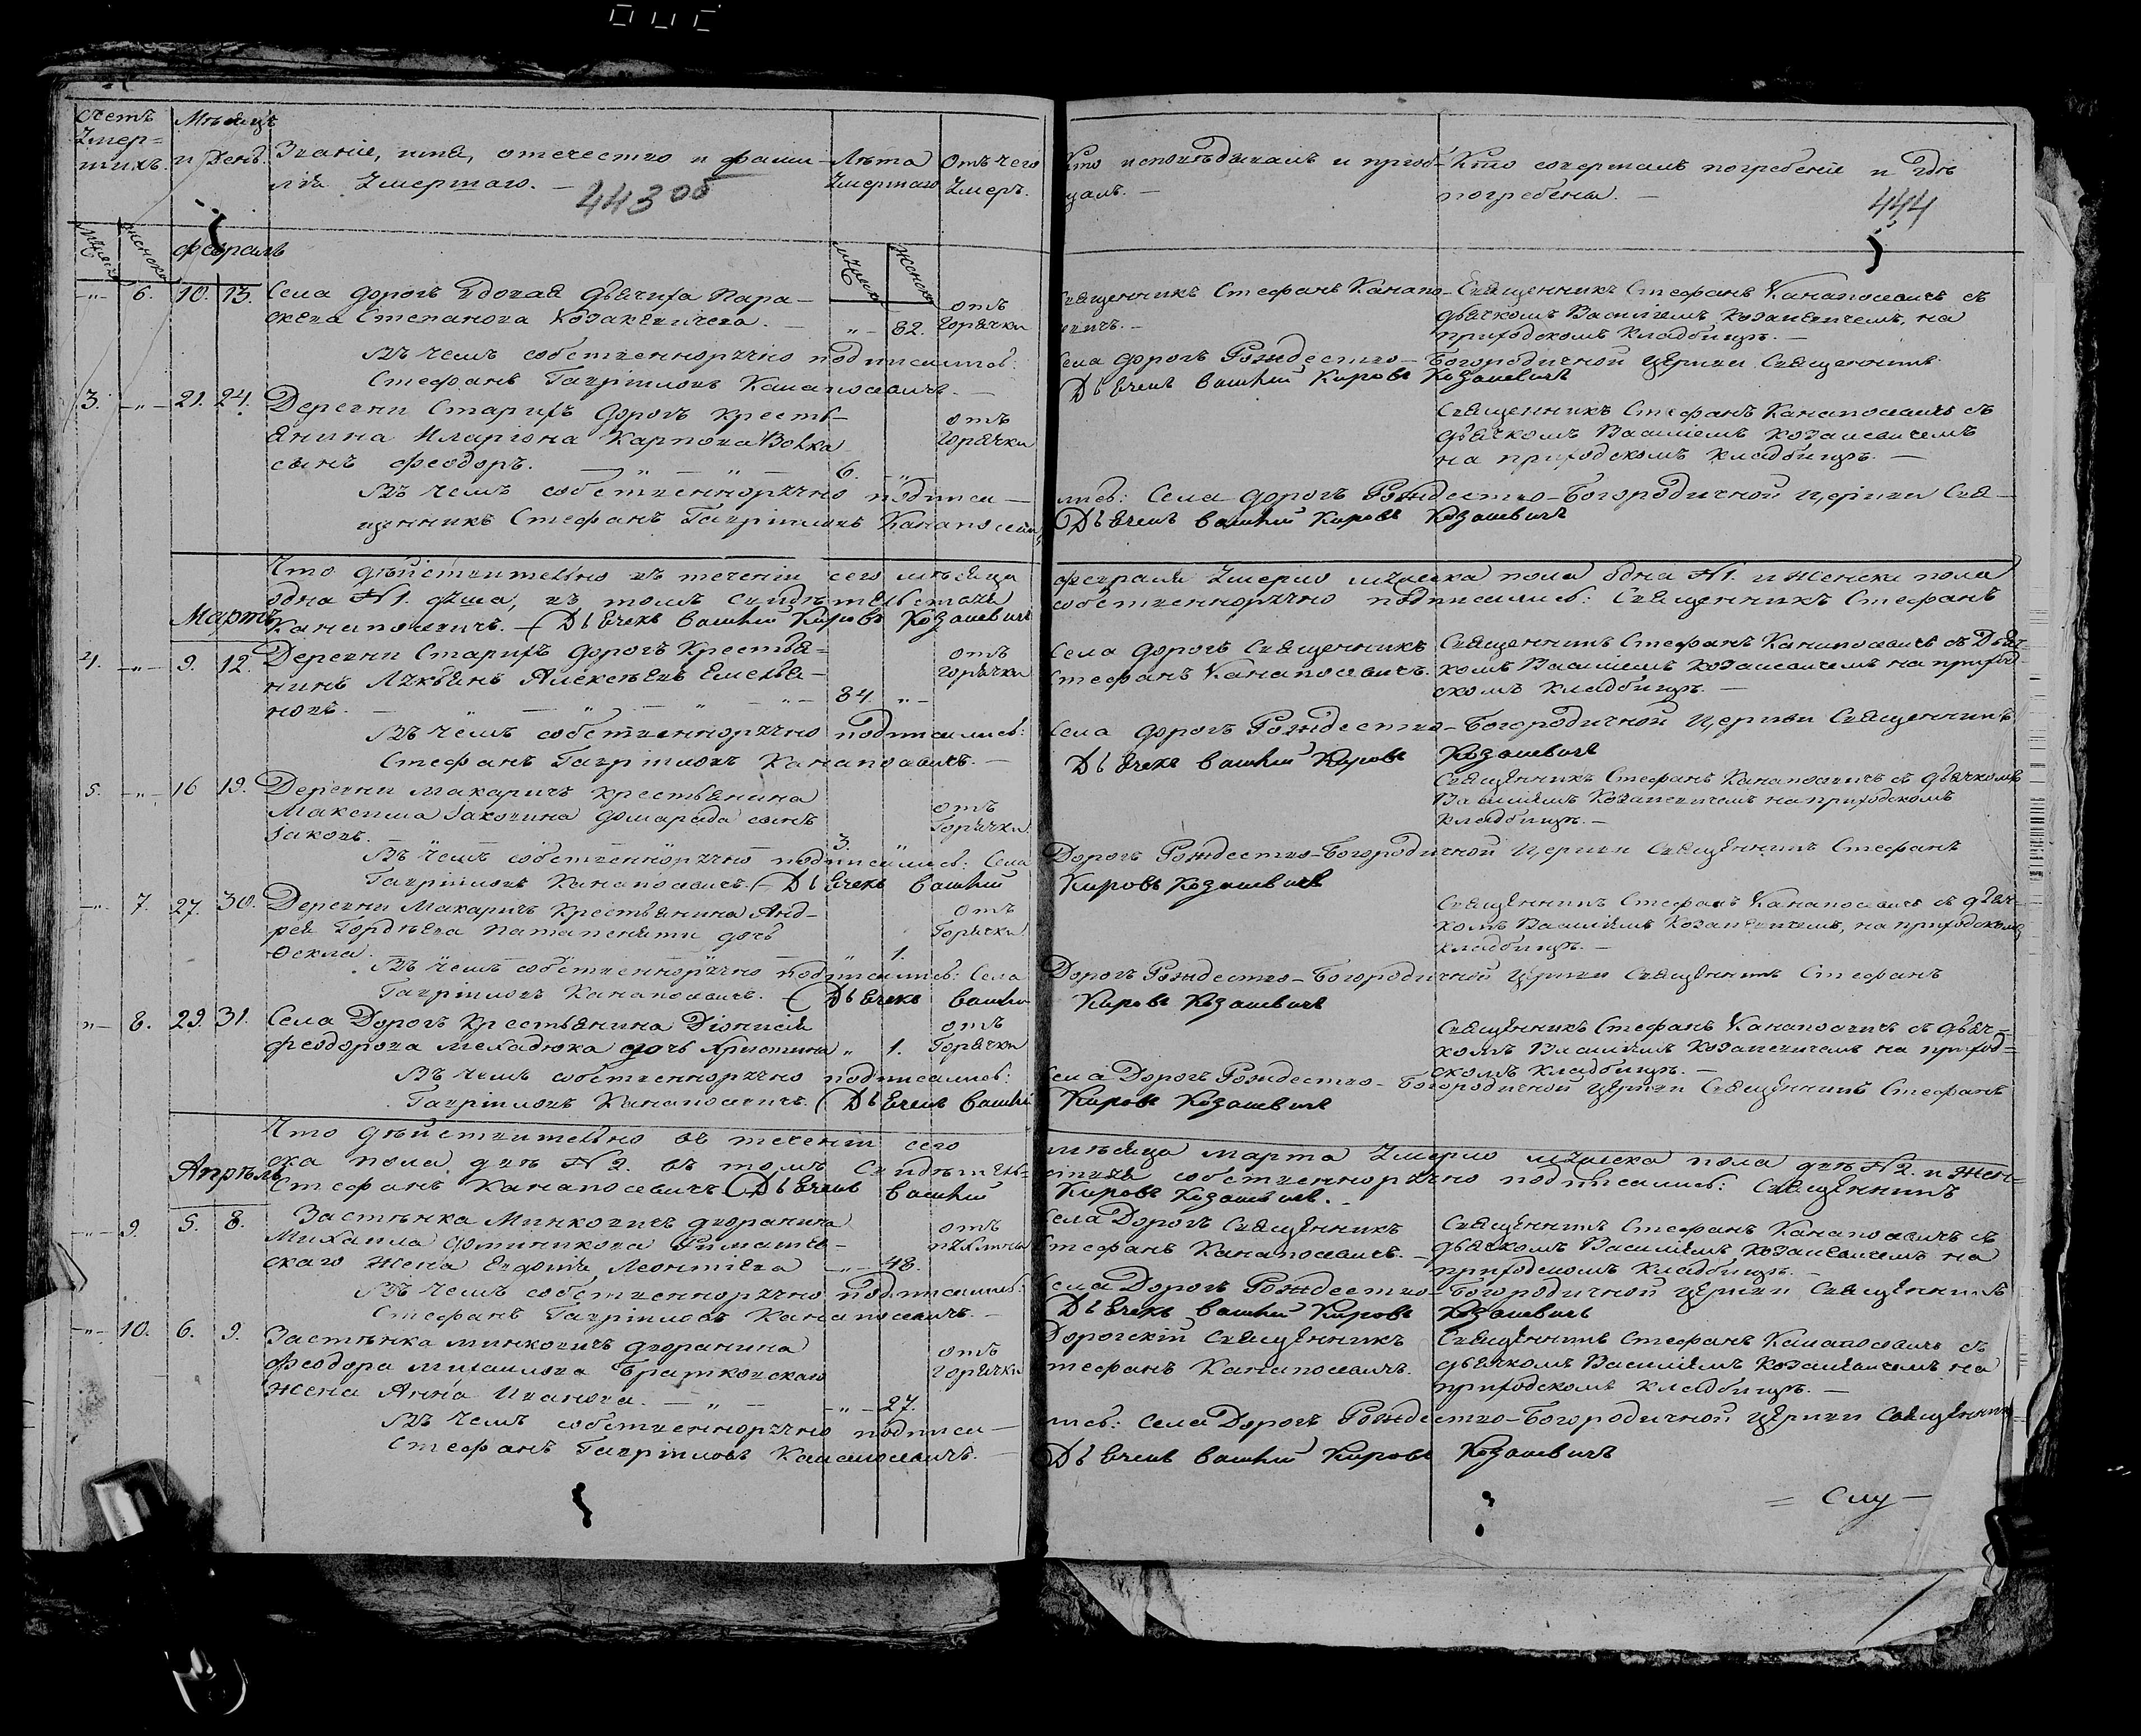 Счетъ Умершихъ.
Мѣсяцъ и день.
Званіе, имя, отечество и фамилія Умершаго. —
Лѣта Умершаго
Отъ чего Умеръ.
Кто исповѣдывалъ и пріобщалъ. —
Кто совершалъ погребеніе и гдѣ погребены. —
443 об
444
Женска
Февраль
Женска
— „ — 6. 10. 13. Села Дорогъ вдовая дьячиха Пара-
скева Степанова Козакевичева. — „ — 82. отъ горячки
Священникъ Стефанъ Канапо-
евичъ. —
Священникъ Стефанъ Канапоевичъ съ
дьячкомъ Василіемъ Козакевичемъ, на
приходскомъ кладбищѣ. —
Въ чемъ собственноручно подписались: Села Дорогъ Рождество-Богородичной церкви Священникъ
Стефанъ Гавріиловъ Канапоевичъ. — Дьячекъ Козакевичъ
3. — „ — 21. 24. Деревни Старихъ Дорогъ кресть-
янина Иларіона Карпова Волка
сынъ Феодоръ. — „ — „ — 6. — „ — отъ горячки
Священникъ Стефанъ Канапоевичъ съ
дьячкомъ Василіемъ Козакевичемъ
на приходскомъ кладбищѣ. —
Въ чемъ собственноручно подписа-лись: Села Дорогъ Рождество-Богородичной церкви Свя-
щенникъ Стефанъ Гавріиловъ Канапоевичъ Дьячекъ Козакевичъ
Что дѣйствительно въ теченіи сего мѣсяца февраля Умерло мужеска пола одна №1. и Женска пола
одна №1. душа, въ томъ свидѣтельствуя собственноручно подписались: Священникъ Стефанъ
Канапоевичъ. — Дьячекъ Козакевичъ
Мартъ
4. — „ — 9. 12. Деревни Старихъ Дорогъ Крестья-
нинъ Лукьянъ Алексѣевъ Емелья-
новъ. — 84 „ — отъ горячки
Села Дорогъ Священникъ
Стефанъ Канапоевичъ.
Священникъ Стефанъ Канапоевичъ съ Дьяч-
комъ Василіемъ Козакевичемъ на приход-
скомъ кладбищѣ. —
Въ чемъ собственноручно подписались: Села Дорогъ Рождество-Богородичной Церкви Священникъ
Стефанъ Гавріиловъ Канапоевичъ. — Дьячекъ Козакевичъ
5. — „ — 16 19. Деревни Макаричъ крестьянина
Максима Іаковина Домарада сынъ
Іаковъ. — 3. „ отъ Горячки
Священникъ Стефанъ Канапоевичъ съ дьячкомъ
Василіемъ Козакевичемъ на приходскомъ
кладбищѣ. —
Въ чемъ собственноручно подписались: Села Дорогъ Рождество-Богородичной Церкви Священникъ Стефанъ
Гавріиловъ Канапоевичъ. — Дьячекъ Козакевичъ
— „ — 7. 27. 30. Деревни Макаричъ Крестьянина Анд-
рея Гордѣева дочь
Фекла. — „ 1. отъ Горячки
Священникъ Стефанъ Канапоевичъ съ дьяч-
комъ Василіемъ Козакевичемъ, на приходскомъ
кладбищѣ. —
Въ чемъ собственноручно подписались: Села Дорогъ Рождество-Богородичной Церкви Священникъ Стефанъ
Гавріиловъ Канапоевичъ. — Дьячекъ Козакевичъ
„ — 8. 29. 31. Села Дорогъ Крестьянина Діонисія
Феодорова дочь Христина „ 1. отъ Горячки
Священникъ Стефанъ Канапоевичъ съ дьяч-
комъ Василіемъ Козакевичемъ на приход-
скомъ кладбищѣ. —
Въ чемъ собственноручно подписались: Села Дорогъ Рождество-Богородичной Церкви Священникъ Стефанъ
Гавріиловъ Канапоевичъ. Дьячекъ Козакевичъ
Что дѣйствительно въ теченіи сего мѣсяца марта Умерло мужеска пола двѣ №2. и Жен-
ска пола двѣ №2. въ томъ свидѣтель-ствуя собственноручно подписались: Священникъ
Стефанъ Канапоевичъ Дьячекъ Козакевичъ. —
Апрѣль
— „ — 9. 5. 8. Застѣнка Минковичъ дворанина
Михаила Доминикова
скаго Жена Евдокія Леонтіева — „ — 48. отъ
Села Дорогъ Священникъ
Стефанъ Канапоевичъ. —
Священникъ Стефанъ Канапоевичъ съ
дьячкомъ Василіемъ Козакевичемъ на
приходскомъ кладбищѣ. —
Въ чемъ собственноручно подписались: Села Дорогъ Рождество-Богородичной Церкви Священникъ
Стефанъ Гавріиловъ Канапоевичъ. — Дьячекъ Козакевичъ
— „ — 10. 6. 9. Застѣнка Минковичъ дворанина
Феодора Михаилова Братковскаго
жена Анна Иванова. — „ — — „ — 27. отъ горячки
Дорогскій Священникъ
Стефанъ Канапоевичъ.
Священникъ Стефанъ Канапоевичъ съ
дьячкомъ Василіемъ Козакевичемъ на
приходскомъ кладбищѣ. —
Въ чемъ собственноручно подписа-лись: Села Дорогъ Рождество-Богородичной Церкви Священникъ
Стефанъ Гавріиловъ Канапоевичъ. — Дьячекъ Козакевичъ
= Слу —